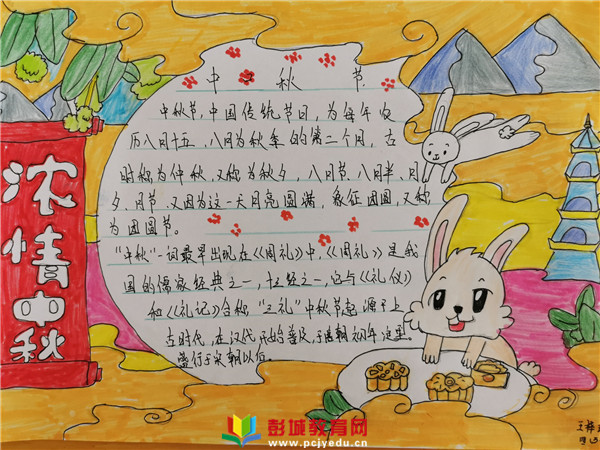 浓情中秋
中秋节
中秋节,中国传统节日,为每年农
历八月十五,八月为秋季的第二个月,古
时称为仲秋,又称为秋夕、八月节、八月半、月
夕、月节,又因为这一天月亮圆满,象征团圆,又称
为团圆节。
"中秋"一词最早出现在《周礼》中,《周礼》是我
国的儒家经典之一,十三经之一,它与《礼仪》
和《礼记》合称"三礼"中秋节起源于上
古时代,在汉代开始普及,于唐朝初年定型,
盛行于宋朝以后。
彭城教育网
www.pcjyedu.cn